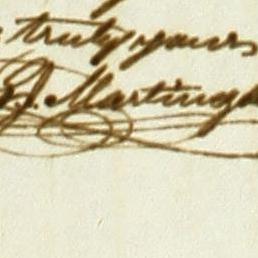 truly yours
J. Martingh